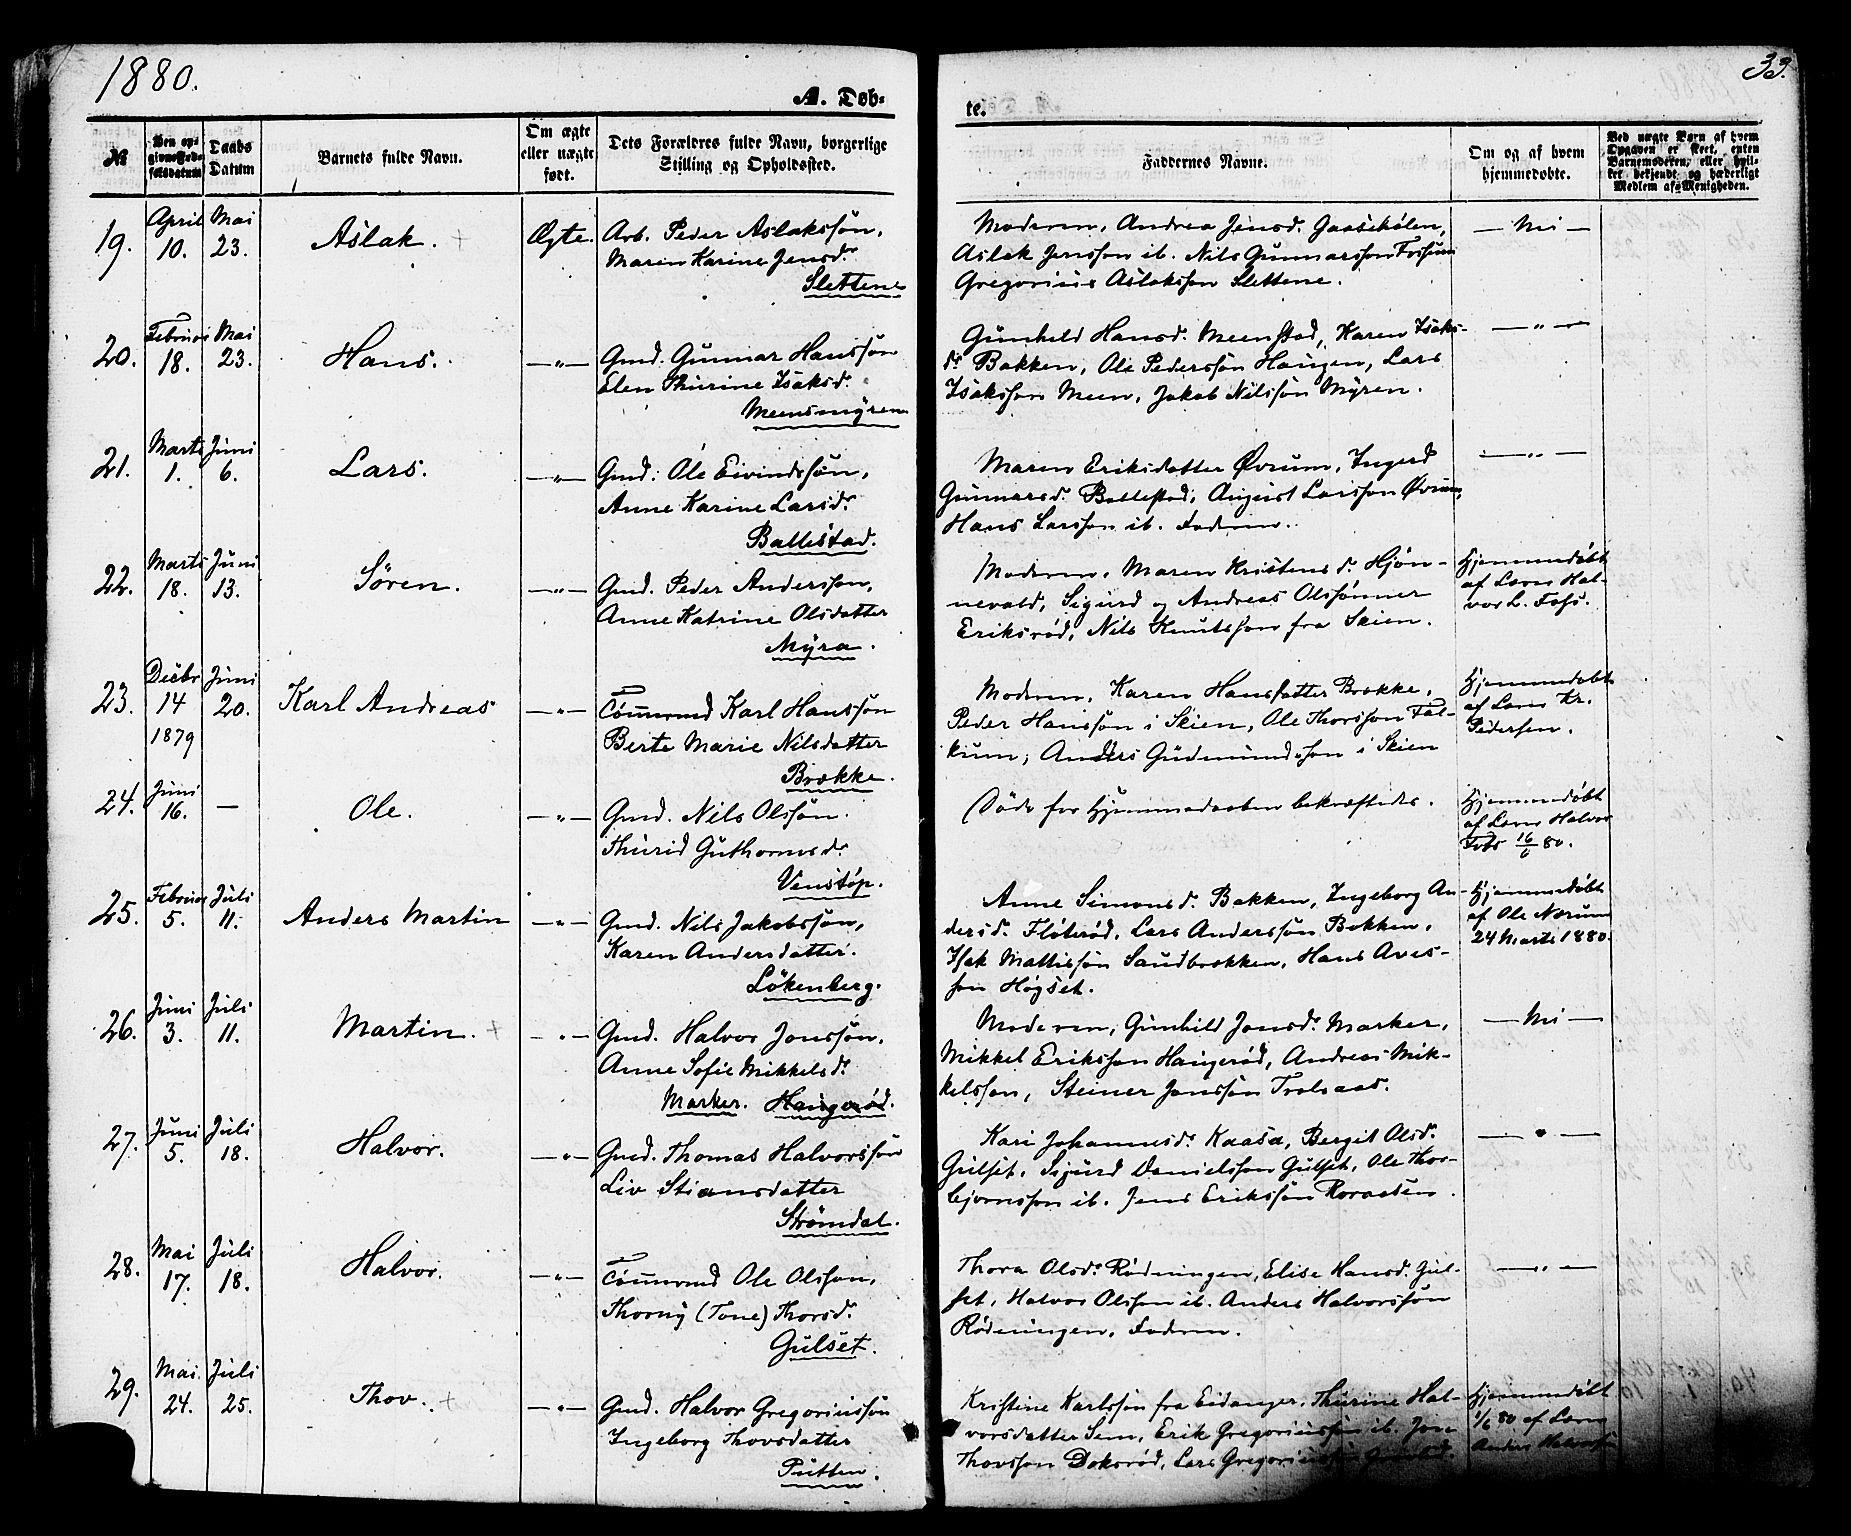 1880.
A. Døb-
te.
33.
№
Den opgivne Fødselsdatum
Daabs Datum
Barnets fulde Navn.
Om ægte eller uægte født.
Dets Forældres fulde Navn, borgerlige Stilling og Opholdssted.
Faddernes Navne.
Om og af hvem hjemmedøbte.
Ved uægte Barn af hvem Opgaven er skeet, enten Barnemoderen, eller hvilket bekjendt og hæderligt Medlem af Menigheden.
19. April 10. Mai 23. Aslak. Ægte. Arb. Peder Aslakssøn,
Maren Karine Jensd.
Slettene
Moderen, Andrea Jensd. Gaaseholen,
Aslak Jenssøn ib. Nils Gunnarssøn Fossum
Gregorius Aslakssøn Slettene.
— Nei —
20. Februar 18. Mai 23. Hans. —„— Gmd. Gunnar Hanssøn
Elen Thurine Isaksd.
Meensmyren
Gunhild Hansd. Meenstad, Karen Isaks-
d. Bakken, Ole Pederssøn Haugen, Lars
Isakssøn Meen, Jakob Nilssøn Myren.
—„—
21. Marts 1. Juni 6. Lars. —„— Gmd. Ole Eivindssøn,
Anne Karine Larsd.
Ballestad.
Maren Eriksdatter Øvrum, Ingerd
Gunnarsd. Ballestad, August Larssøn Øvrum,
Hans Larssøn ib. Faderen.
—„—
22. Marts 18. Juni 13. Søren. —„— Gmd. Peder Anderssøn,
Anne Katrine Olsdatter
Myra.
Moderen, Maren Kristensd. Hjøn-
nevald, Sigurd og Andreas Olsønner
Eriksrød, Nils Knutssøn fra Skien.
Hjemmedøbt
af Lærer Hal-
vor L. Foss.
23. Decbr 14 1879 Juni 20. Karl Andreas —„— Tømmermd Karl Hanssøn
Berte Marie Nilsdatter
Brække.
Moderen, Karen Hansdatter Brække,
Peder Hanssøn i Skien, Ole Thorssøn Fal-
kum, Anders Gudmundssøn i Skien
Hjemmedøbt
af Lærer Kr.
Pedersen.
24. Juni 16. — Ole. —„— Gmd. Nils Olssøn.
Thurid Guthormsd.
Venstøp.
Døde før Hjemmedaaben bekræftedes.
Hjemmedøbt
af Lærer Halvor
Foss 16/6 80.
25. Februar 5. Juli 11. Anders Martin —„— Gmd. Nils Jakobssøn,
Karen Andersdatter.
Løkenberg.
Anne Simonsd. Bakken, Ingeborg An-
dersd. Fløterød, Lars Anderssøn Bakken,
Isak Mattissøn Sandbrækken, Hans Aves-
søn Høgset.
Hjemmedøbt
af Ole Nærum
24 Marts 1880.
26. Juni 3. Juli 11. Martin. —„— Gmd. Halvor Jonssøn,
Anne Sofie Mikkelsd.
Marker. Haugerød.
Moderen, Gunhild Jonsd. Marker,
Mikkel Erikssøn Haugerød, Andreas Mik-
kelssøn, Steiner Jonssøn Trolsaas.
— Nei —
27. Juni 5. Juli 18. Halvor. —„— Gmd. Thomas Halvorssøn
Liv Stiansdatter
Strømdal.
Kari Johannesd. Kaasa, Bergit Olsd.
Gulset, Sigurd Danielssøn Gulset, Ole Thor-
bjørnssøn ib. Jens Erikssøn Roraasen.
—„—
28. Mai 17. Juli 18. Halvor. —„— Tømmermd Ole Olssøn,
Thorny (Tone) Thorsd.
Gulset.
Thora Olsd. Rødningen, Elise Hansd. Gul-
set, Halvor Olssøn ib. Anders Halvorssøn
Rødningen, Faderen.
—„—
29. Mai 24. Juli 25. Thov. —„— Gmd. Halvor Gregoriussøn
Ingeborg Thovsdatter
Putten.
Kristine Karlssøn fra Eidanger, Thurine Hal-
vorsdatter Sem, Erik Gregoriussøn ib. Jon
Thovssøn Doksrød, Lars Gregoriussøn
Hjemmedøbt
1/6 80 af Lærer
Anders Halvorssøn